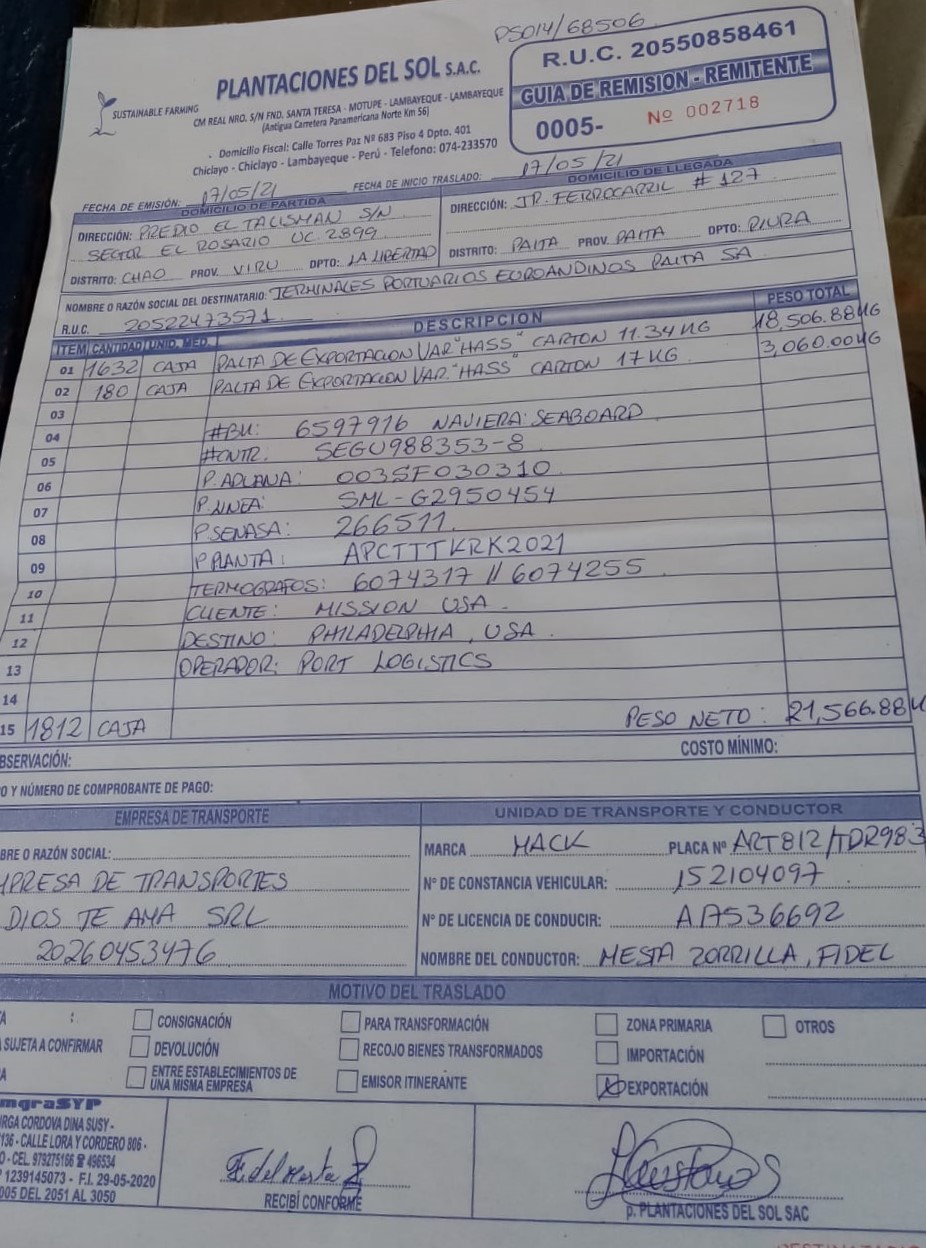 PS014/68506
R.U.C. 20550858461
PLANTACIONES DEL SOL S.A.C.
GUIA DE REMISION - REMITENTE
SUSTAINABLE FARMING
CM REAL NRO. S/N FND. SANTA TERESA - MOTUPE - LAMBAYEQUE - LAMBAYEQUE
(Antigua Carretera Panamericana Norte Km 56)
0005- Nº 002718
Domicilio Fiscal: Calle Torres Paz Nº 683 Piso 4 Dpto. 401
Chiclayo - Chiclayo - Lambayeque - Perú - Telefono: 074-233570
FECHA DE EMISIÓN: 17/05/21 FECHA DE INICIO TRASLADO: 17/05/21
DOMICILIO DE PARTIDA
DIRECCIÓN: PREDIO EL TALISMAN S/N
SECTOR EL ROSARIO UC. 2899
DISTRITO: CHAO PROV. VIRU DPTO: LA LIBERTAD
DOMICILIO DE LLEGADA
DIRECCIÓN: JR. FERROCARRIL # 127
DISTRITO: PAITA PROV. PAITA DPTO: PIURA
NOMBRE O RAZÓN SOCIAL DEL DESTINATARIO: TERMINALES PORTUARIOS EUROANDINOS PAITA SA
R.U.C. 20522473571
ITEM CANTIDAD UNID. MED. DESCRIPCION PESO TOTAL
01 1632 CAJA PALTA DE EXPORTACION VAR "HASS" CARTON 11.34 KG 18,506.88 KG
02 180 CAJA PALTA DE EXPORTACION VAR. "HASS" CARTON 17 KG 3,060.00 KG
03
04 #BK: 6597916 NAVIERA: SEABOARD
05 #CNTR: SEGU988353-8
06 P. ADUANA: 003SF030310
07 P. LINEA: SML-G2950454
08 P. SENASA: 266511
09 P. PLANTA: APCTTTKRK2021
10 TERMOGRAFOS: 6074317 // 6074255
11 CLIENTE: MISSION USA
12 DESTINO: PHILADELPHIA, USA
13 OPERADOR: PORT LOGISTICS
14
15 1812 CAJA PESO NETO: 21,566.88 K
BSERVACIÓN: COSTO MÍNIMO:
O Y NÚMERO DE COMPROBANTE DE PAGO:
EMPRESA DE TRANSPORTE
BRE O RAZÓN SOCIAL:
PRESA DE TRANSPORTES
DIOS TE AMA SRL
20260453476
UNIDAD DE TRANSPORTE Y CONDUCTOR
MARCA MACK PLACA Nº ART812/TDR983
Nº DE CONSTANCIA VEHICULAR: 152104097
Nº DE LICENCIA DE CONDUCIR: A17536692
NOMBRE DEL CONDUCTOR: MESTA ZORRILLA, FIDEL
MOTIVO DEL TRASLADO
A : CONSIGNACIÓN PARA TRANSFORMACIÓN ZONA PRIMARIA OTROS
SUJETA A CONFIRMAR DEVOLUCIÓN RECOJO BIENES TRANSFORMADOS IMPORTACIÓN
A ENTRE ESTABLECIMIENTOS DE UNA MISMA EMPRESA EMISOR ITINERANTE EXPORTACIÓN
mgraSYP
RGA CORDOVA DINA SUSY -
136 - CALLE LORA Y CORDERO 806 -
O - CEL 979275166 ☎ 496534
1239145073 - F.I. 29-05-2020
005 DEL 2051 AL 3050
RECIBÍ CONFORME
p. PLANTACIONES DEL SOL SAC